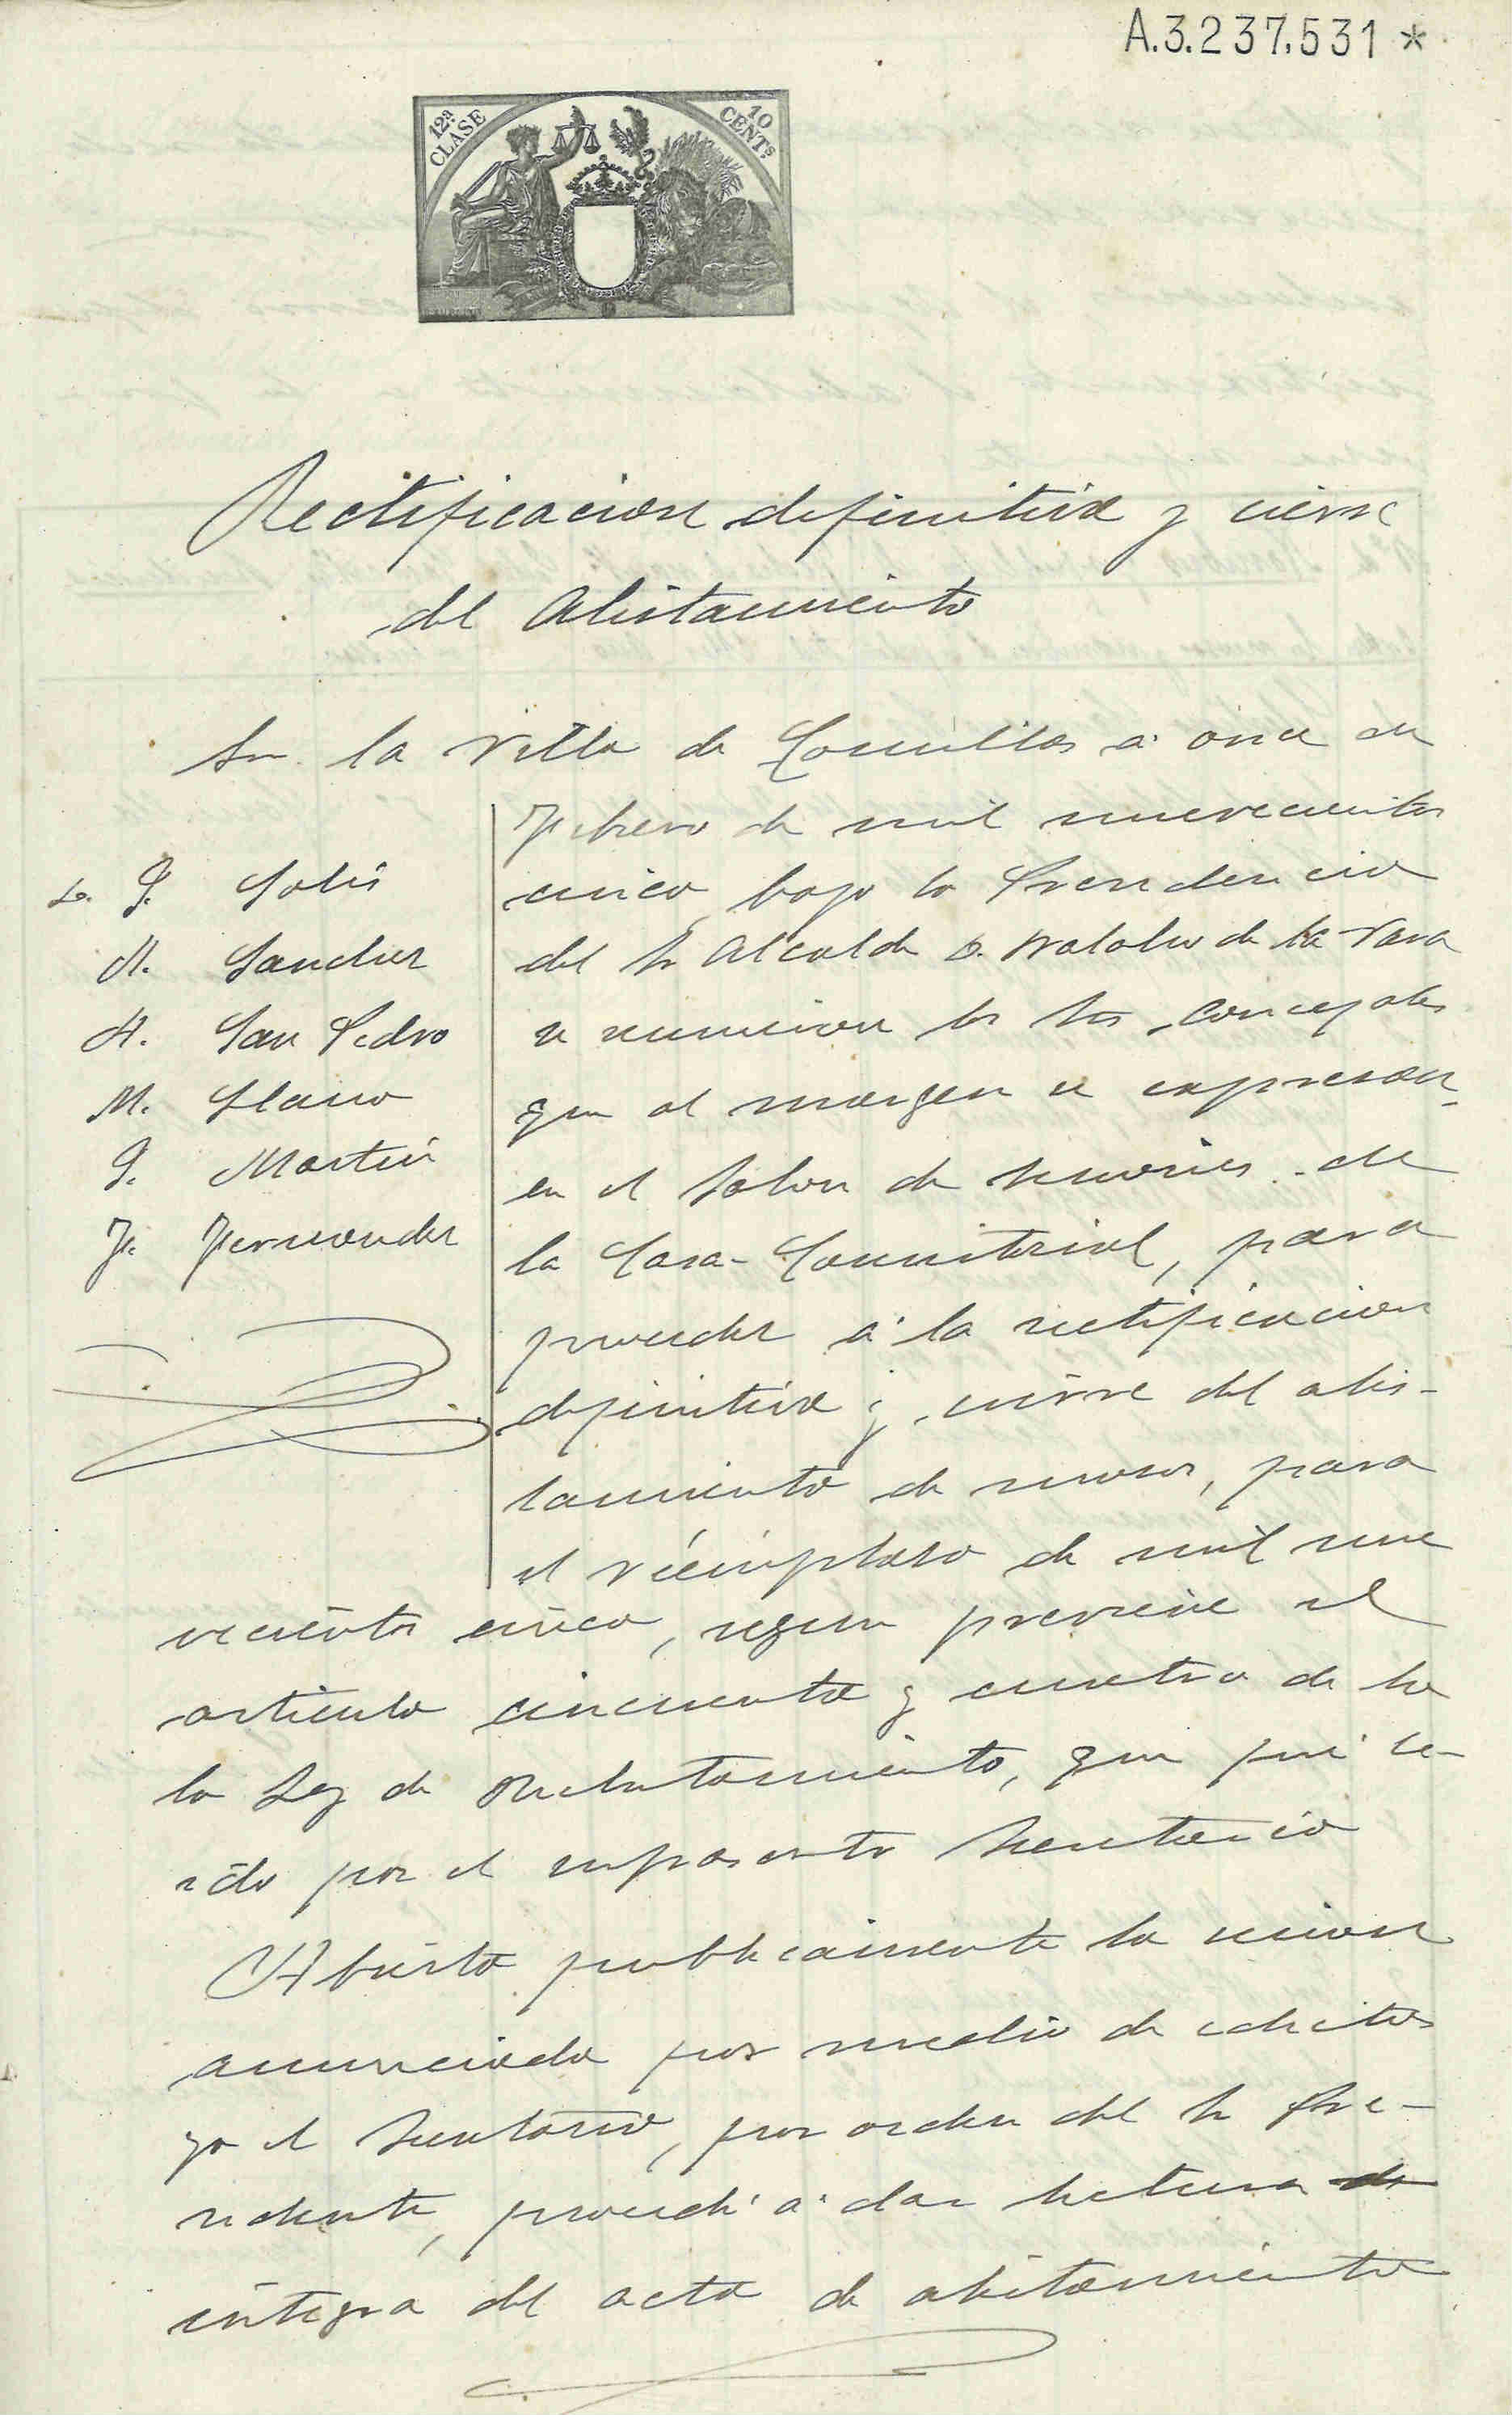 A.3.237.531 *
12ª CLASE
10 CENTs
Rectificacion definitiva y cierre
del Alistamiento
En la Villa de Comillas a once de
Febrero de mil nuevecientos
cinco, bajo la Presidencia
del Sr Alcalde D. de la Vara
se reunieron los Sres Concejales
que al margen se expresan,
en el Salon de sesiones de
la Casa-Consistorial, para
proceder á la rectificacion
definitiva y cierre del alis-
tamiento de mozos, para
el reemplazo de mil nue
vecientos cinco, segun previene el
articulo cincuenta y cuatro de la
la Ley de Reclutamiento, que fué le-
ido por el infrascrito Secretario
D. G. Solís
M. Sanchez
A. San Pedro
M. Llano
G. Martin
F. Fernandez
Abierta publicamente la sesion
anunciada por medio de edictos
yo el Secretario, por orden del Sr Pre-
sidente, procedí á dar lectura de
integra del acta de alistamiento